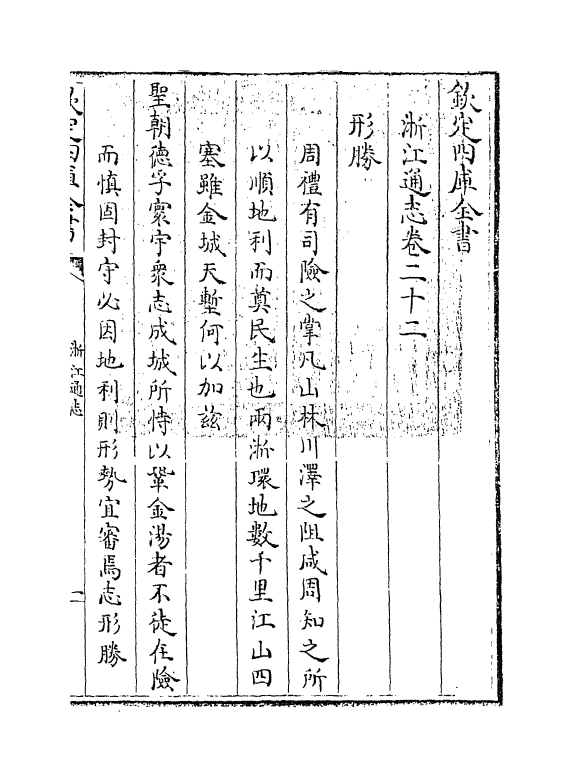 欽定四庫全書
浙江通志卷二十二
形勝
周禮有司險之掌凡山林川澤之阻咸周知之所
以順地利而奠民生也兩浙環地數千里江山四
塞雖金城天塹何以加兹
聖朝德孚寰宇衆志成城所恃以鞏金湯者不徒在險
而慎固封守必因地利則形勢宜審焉志形勝
欽定四庫全書
浙江通志
一